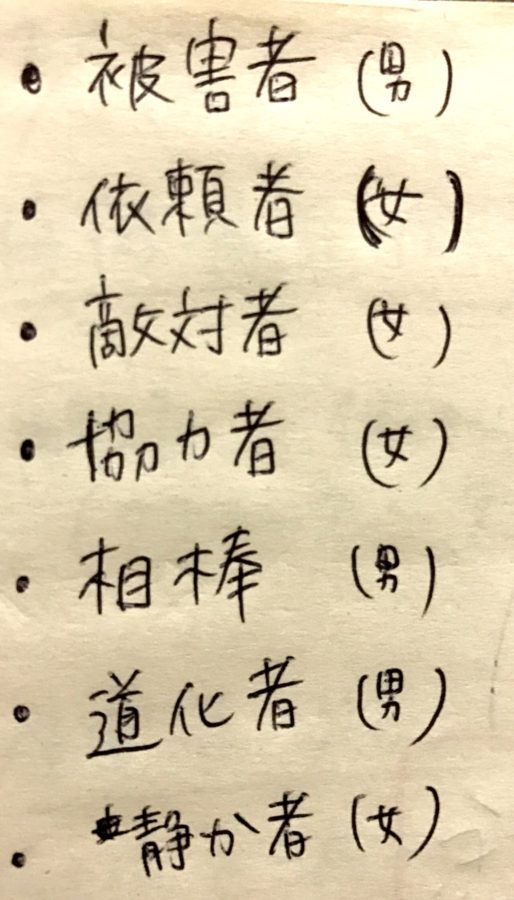 ・被害者 (男)
・依頼者 (女)
・敵対者 (女)
・協力者 (女)
・相棒 (男)
・道化者 (男)
・静か者 (女)